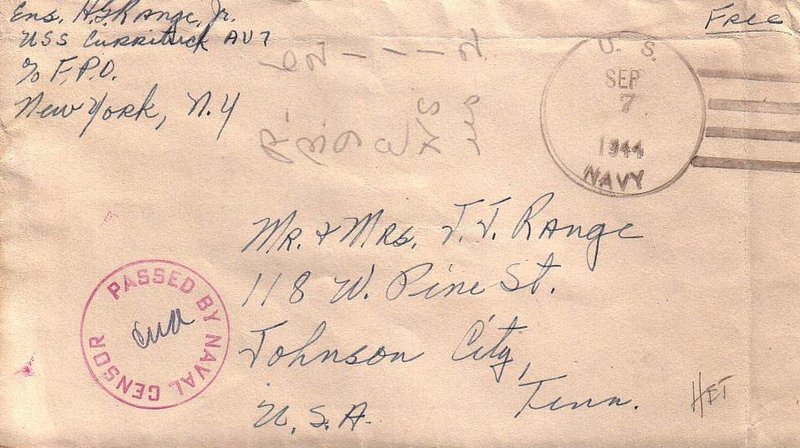 Ens. H.G. Range, Jr.
USS Currituck AV7
℅ F.P.O.
New York, N.Y
Free
U. S.
SEP
7
1944
NAVY
Mr. & Mrs. T. T. Range
118 W. Pine St.
Johnson City,
Tenn.
U.S.A.
PASSED BY NAVAL CENSOR
HET